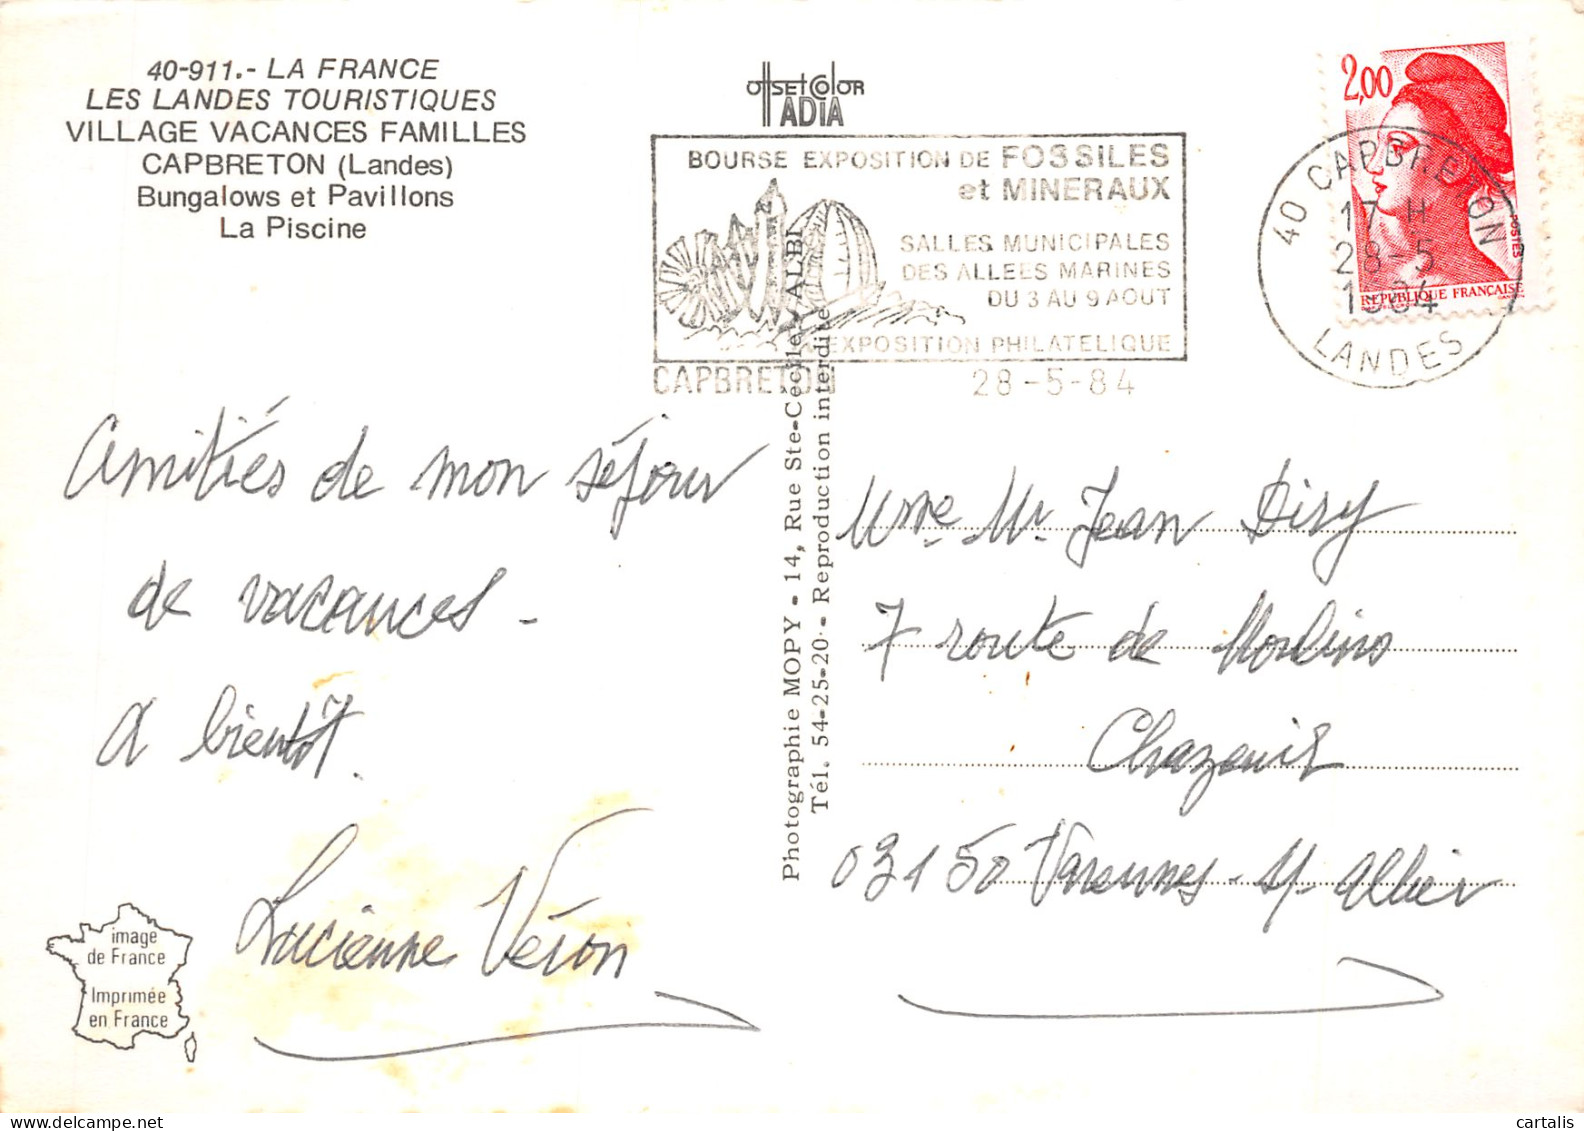 40-911.- LA FRANCE
LES LANDES TOURISTIQUES
VILLAGE VACANCES FAMILLES
CAPBRETON (Landes)
Bungalows et Pavillons
La Piscine
OffSET COlOR
IADIA
BOURSE EXPOSITION DE FOSSILES
et MINERAUX
SALLES MUNICIPALES
DES ALLEES MARINES
DU 3 AU 9 AOUT
EXPOSITION PHILATELIQUE
CAPBRETON 28-5-84
2,00
POSTES
REPUBLIQUE FRANÇAISE
40 CAPBRETON
17 H
28-5
1984
LANDES
Amitiés de mon séjour
de vacances -
A bientôt.
Lucienne Véron
Photographie MOPY - 14, Rue Ste-Cécile, ALBI
Tél. 54-25-20 - Reproduction interdite
Mme Mr Jean
7 route de Moulins
Chazeuil
03150 Varennes - s/ Allier
image
de France
Imprimée
en France
cartalis